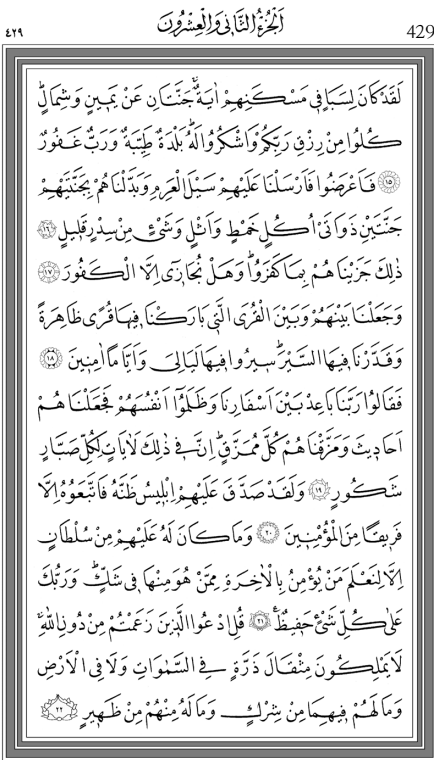 ٤٢٩ اَلْجُزْءُ الثَّانِى وَالْعِشْرُونَ 429
لَقَدْ كَانَ لِسَبَاٍ فِى مَسْكَنِهِمْ اٰيَةٌۚ جَنَّتَانِ عَنْ يَمِينٍ وَشِمَالٍۜ
كُلُوا مِنْ رِزْقِ رَبِّكُمْ وَاشْكُرُوا لَهُۜ بَلْدَةٌ طَيِّبَةٌ وَرَبٌّ غَفُورٌ
﴿١٥﴾ فَاَعْرَضُوا فَاَرْسَلْنَا عَلَيْهِمْ سَيْلَ الْعَرِمِ وَبَدَّلْنَاهُمْ بِجَنَّتَيْهِمْ
جَنَّتَيْنِ ذَوَاتَىْ اُكُلٍ خَمْطٍ وَاَثْلٍ وَشَىْءٍ مِنْ سِدْرٍ قَلِيلٍ ﴿١٦﴾
ذٰلِكَ جَزَيْنَاهُمْ بِمَا كَفَرُواۜ وَهَلْ نُجَازِٓى اِلَّا الْكَفُورَ ﴿١٧﴾
وَجَعَلْنَا بَيْنَهُمْ وَبَيْنَ الْقُرَى الَّتِى بَارَكْنَا فِيهَا قُرًى ظَاهِرَةً
وَقَدَّرْنَا فِيهَا السَّيْرَۜ سِيرُوا فِيهَا لَيَالِىَ وَاَيَّامًا اٰمِنِينَ ﴿١٨﴾
فَقَالُوا رَبَّنَا بَاعِدْ بَيْنَ اَسْفَارِنَا وَظَلَمُٓوا اَنْفُسَهُمْ فَجَعَلْنَاهُمْ
اَحَادِيثَ وَمَزَّقْنَاهُمْ كُلَّ مُمَزَّقٍۜ اِنَّ فِى ذٰلِكَ لَاٰيَاتٍ لِكُلِّ صَبَّارٍ
شَكُورٍ ﴿١٩﴾ وَلَقَدْ صَدَّقَ عَلَيْهِمْ اِبْلِيسُ ظَنَّهُ فَاتَّبَعُوهُ اِلَّا
فَرِيقًا مِنَ الْمُؤْمِنِينَ ﴿٢٠﴾ وَمَا كَانَ لَهُ عَلَيْهِمْ مِنْ سُلْطَانٍ
اِلَّا لِنَعْلَمَ مَنْ يُؤْمِنُ بِالْاٰخِرَةِ مِمَّنْ هُوَ مِنْهَا فِى شَكٍّۜ وَرَبُّكَ
عَلٰى كُلِّ شَىْءٍ حَفِيظٌ۟ ﴿٢١﴾ قُلِ ادْعُوا الَّذِينَ زَعَمْتُمْ مِنْ دُونِ اللّٰهِۚ
لَا يَمْلِكُونَ مِثْقَالَ ذَرَّةٍ فِى السَّمٰوَاتِ وَلَا فِى الْاَرْضِ
وَمَا لَهُمْ فِيهِمَا مِنْ شِرْكٍ وَمَا لَهُ مِنْهُمْ مِنْ ظَهِيرٍ ﴿٢٢﴾